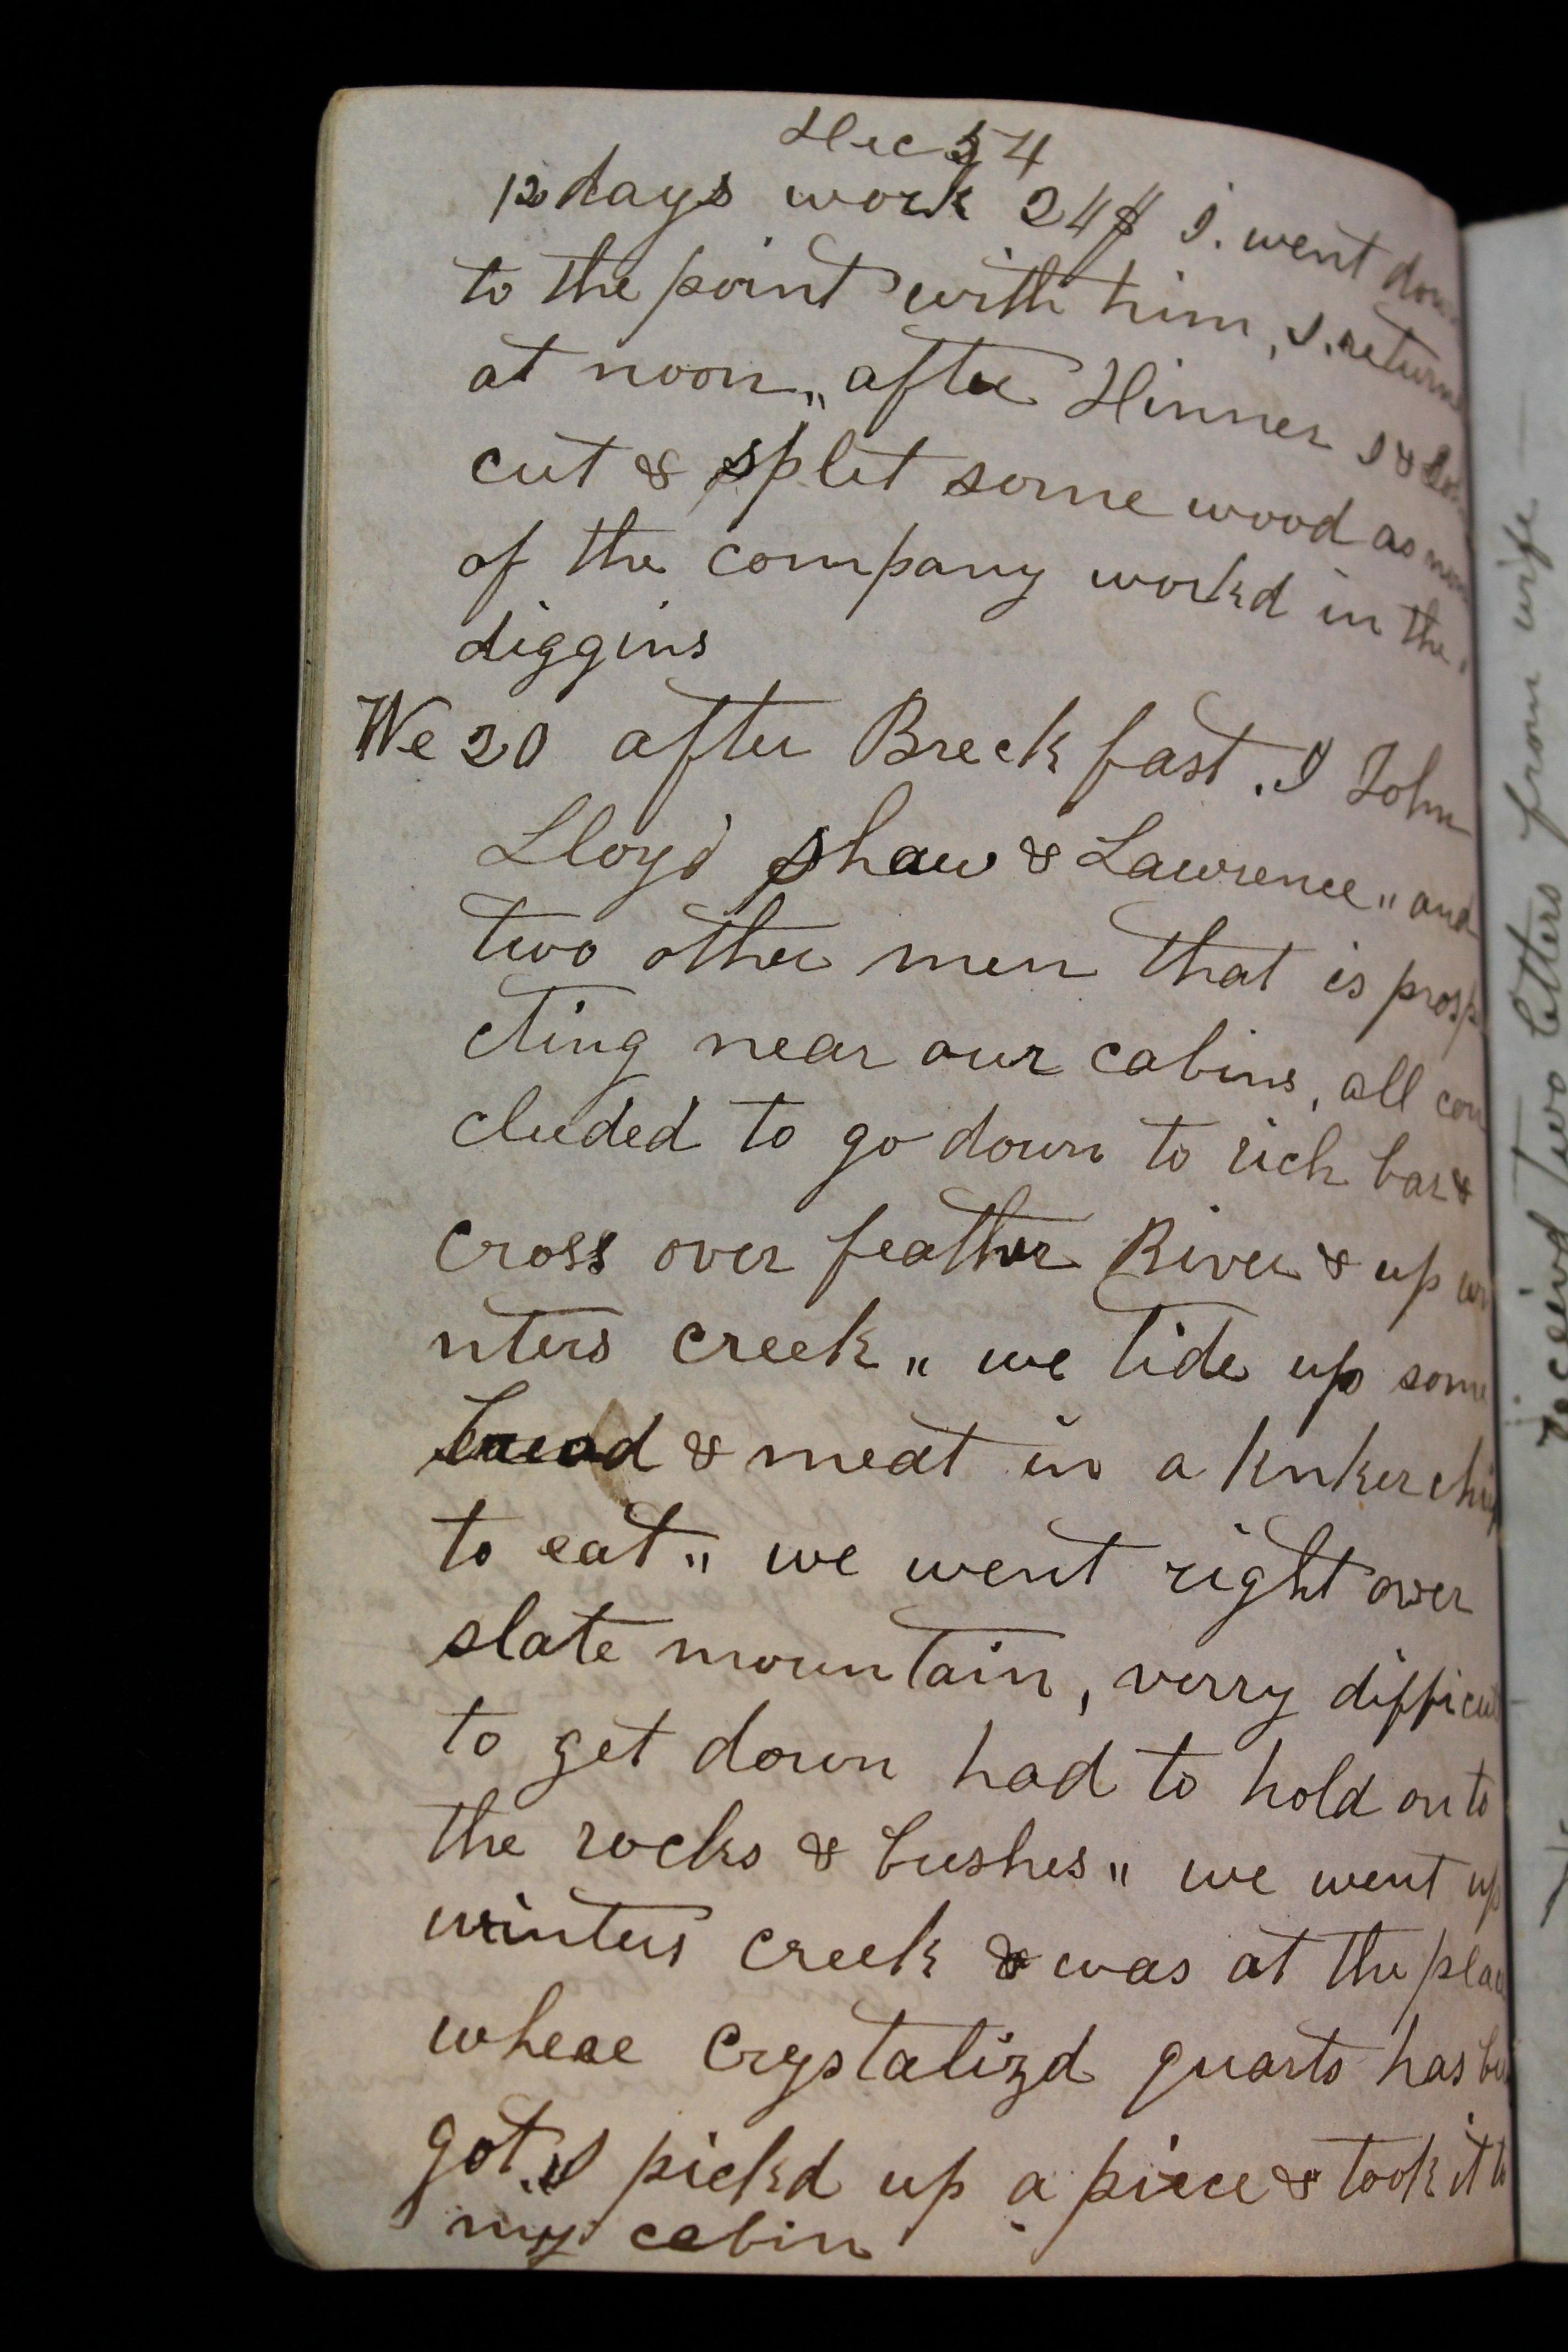 Dec 54
12 days work 24$ I. went down
to the point with him, I. return
at noon,, after Dinner I &
cut & split some wood as non
of the company workd in the
diggins
We 20 after Breck fast. I John
Lloyd Shaw & Lawrence " and
two other men that is prosp
cting near our cabins, all con
cluded to go down to rich bar &
cross over feather River & up wi
nters creek ,, we tide up some
bread & meat in a knkerchif
to eat ,, we went right over
slate mountain, verry difficult
to get down had to hold on to
the rocks & bushes ,, we went up
winters creek & was at the place
where crystalizd quarts has be
got ,, I pickd up a piece & took it to
my cabin
receivd two letters from wife